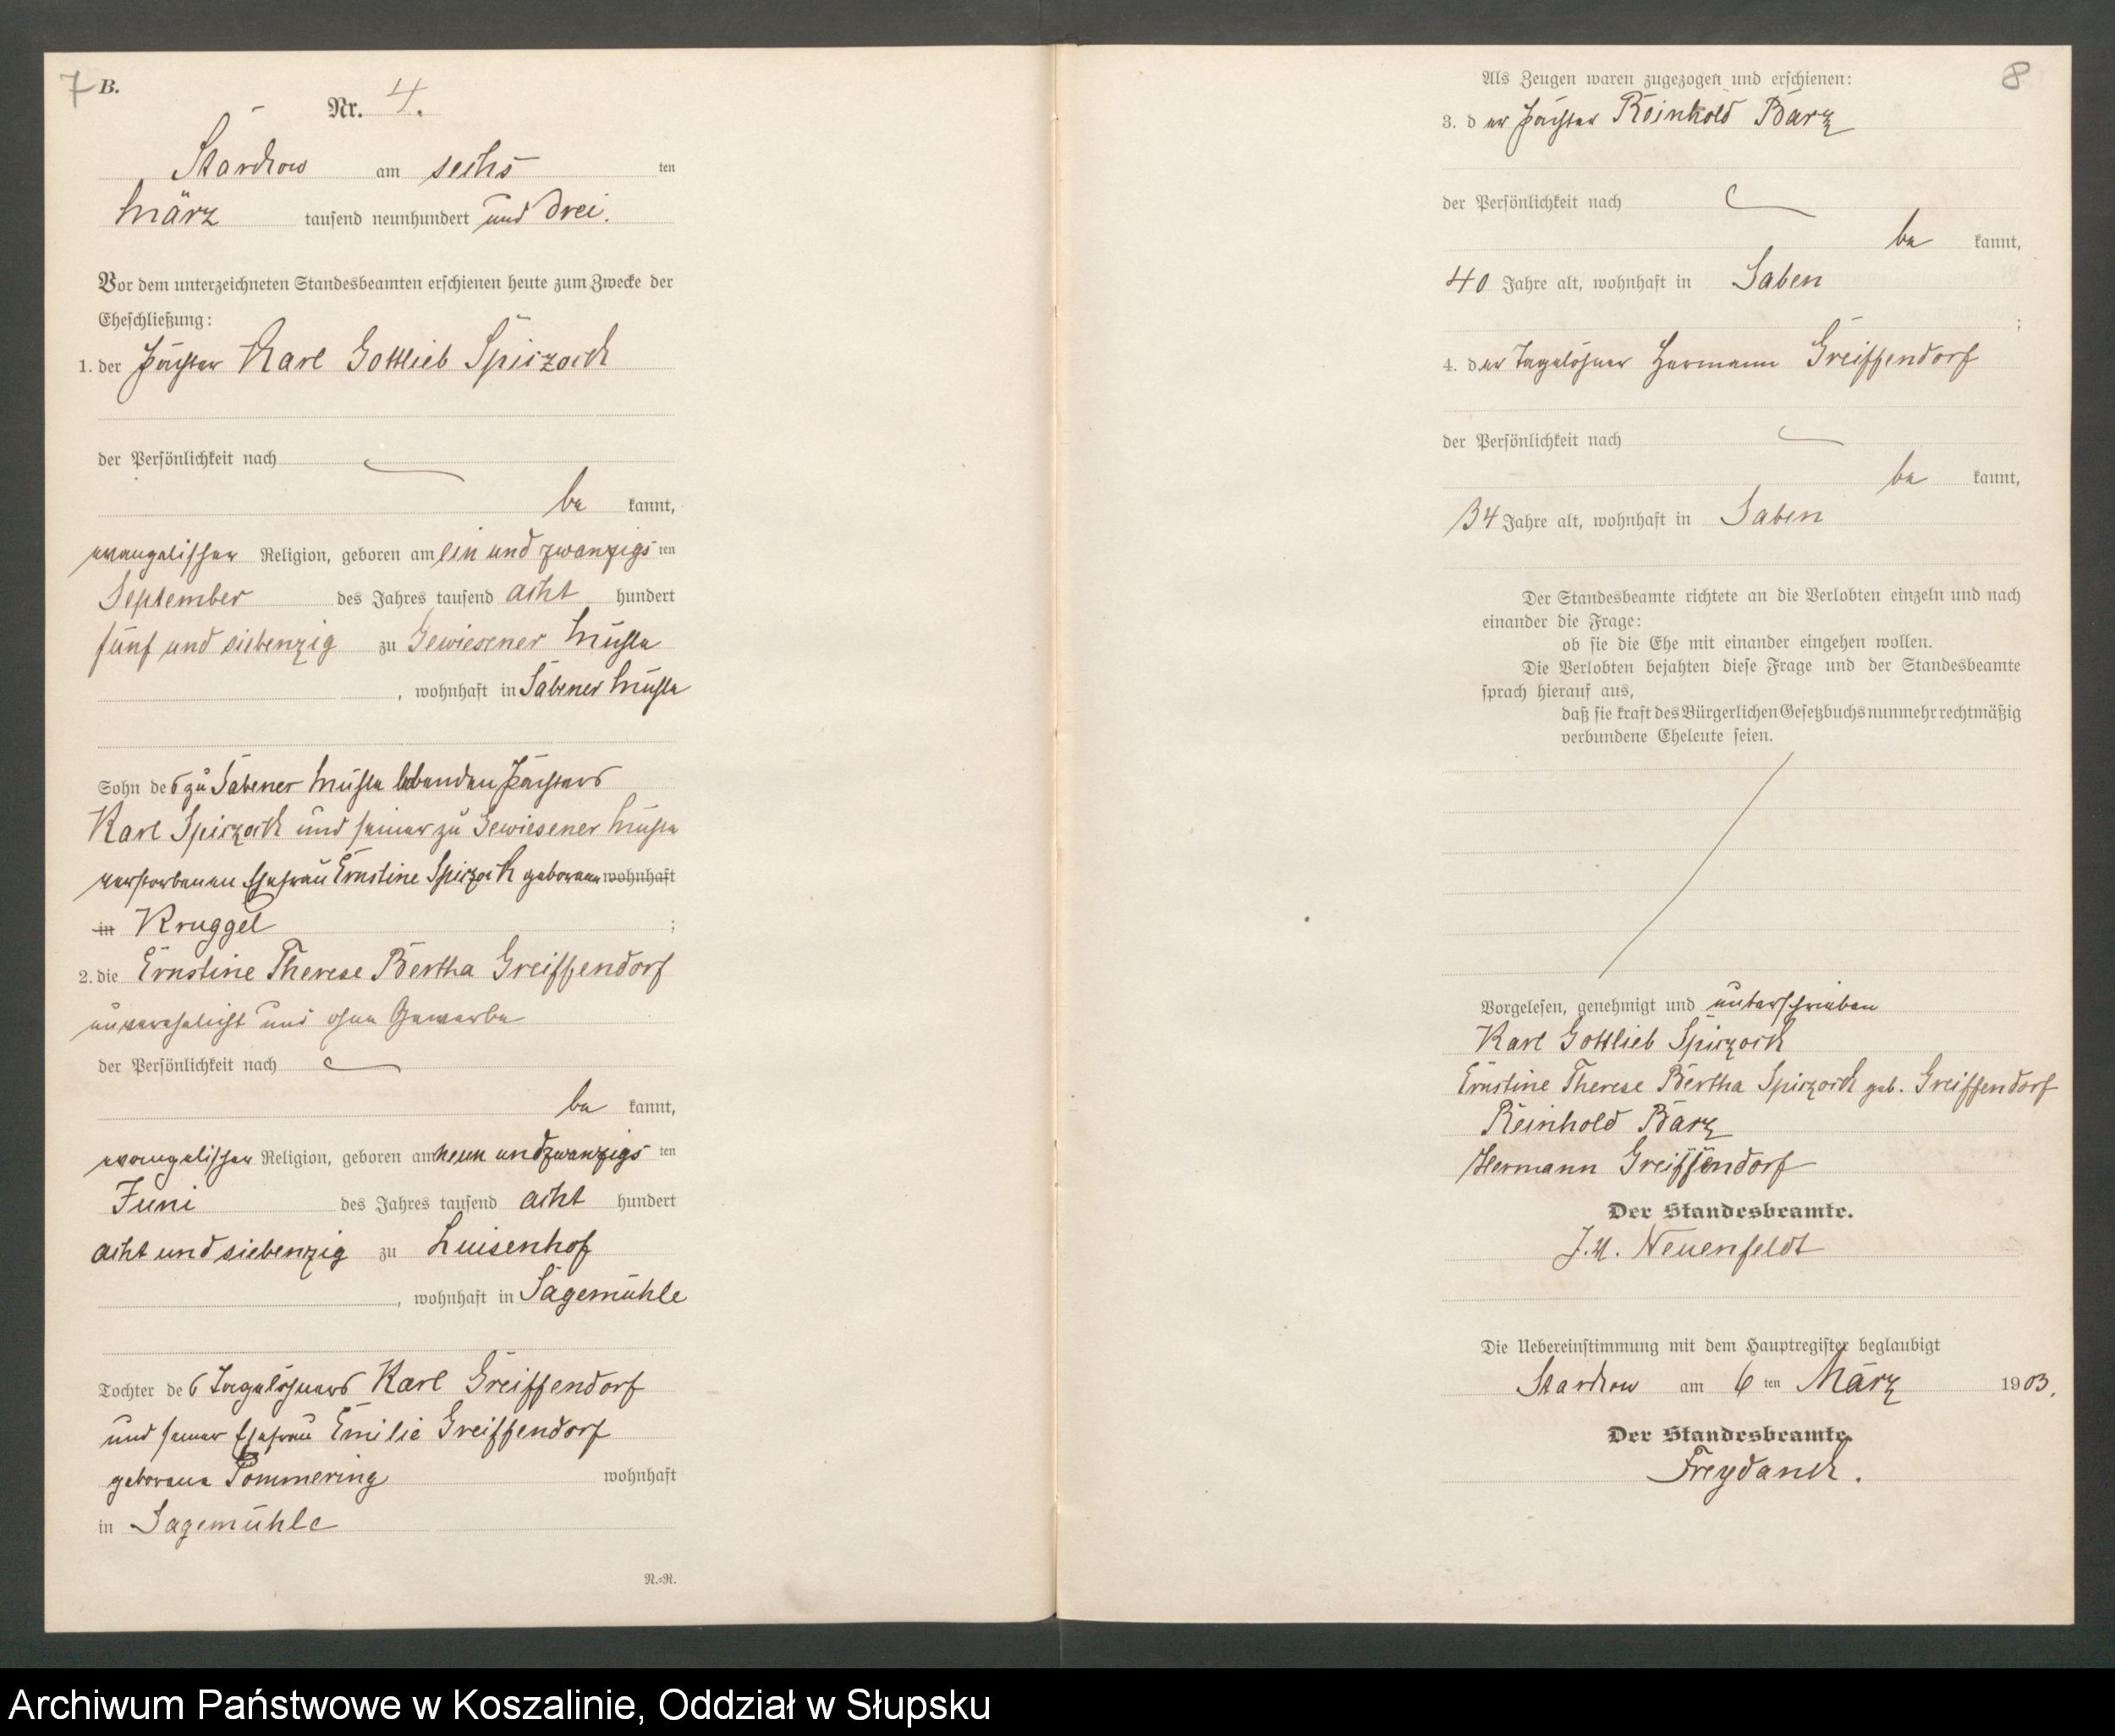 7 B.
Nr. 4.
Starkow am sechsten
März tausend neunhundert und drei.
Vor dem unterzeichneten Standesbeamten erschienen heute zum Zwecke der
Eheschließung:
1. der Pächter Karl Gottlieb Spirzock
der Persönlichkeit nach
be kannt,
evangelischer Religion, geboren am ein und zwanzigsten
September des Jahres tausend acht hundert
fünf und siebenzig zu Gewiesener Mühle
, wohnhaft in Sabener Mühle
Sohn des zu Sabener Mühle lebenden Pächters
Karl Spirzock und seiner zu Gewiesener Mühle
verstorbenen Ehefrau Ernstine Spirzock geborene wohnhaft
in Kruggel ;
2. die Ernstine Therese Bertha Greiffendorf
unverehelicht und ohne Gewerbe
der Persönlichkeit nach
be kannt,
evangelischer Religion, geboren am neun und zwanzigsten
Juni des Jahres tausend acht hundert
acht und siebenzig zu Luisenhof
, wohnhaft in Sägemühle
Tochter des Tagelöhners Karl Greiffendorf
und seiner Ehefrau Emilie Greiffendorf
geborene Pommering wohnhaft
in Sagemühle
N.=R.
8
Als Zeugen waren zugezogen und erschienen:
3. der Pächter Reinhold Barz
der Persönlichkeit nach
be kannt,
40 Jahre alt, wohnhaft in Saben
;
4. der Tagelöhner Hermann Greiffendorf
der Persönlichkeit nach
be kannt,
34 Jahre alt, wohnhaft in Saben
Der Standesbeamte richtete an die Verlobten einzeln und nach
einander die Frage:
ob sie die Ehe mit einander eingehen wollen.
Die Verlobten bejahten diese Frage und der Standesbeamte
sprach hierauf aus,
daß sie kraft des Bürgerlichen Gesetzbuchs nunmehr rechtmäßig
verbundene Eheleute seien.
Vorgelesen, genehmigt und unterschrieben
Karl Gottlieb Spirzock
Ernstine Therese Bertha Spirzock geb. Greiffendorf
Reinhold Barz
Hermann Greiffendorf
Der Standesbeamte.
J.V. Neuenfeldt
Die Uebereinstimmung mit dem Hauptregister beglaubigt
Starkow am 6ten März 1903.
Der Standesbeamte.
Freydanck.
Archiwum Państwowe w Koszalinie, Oddział w Słupsku